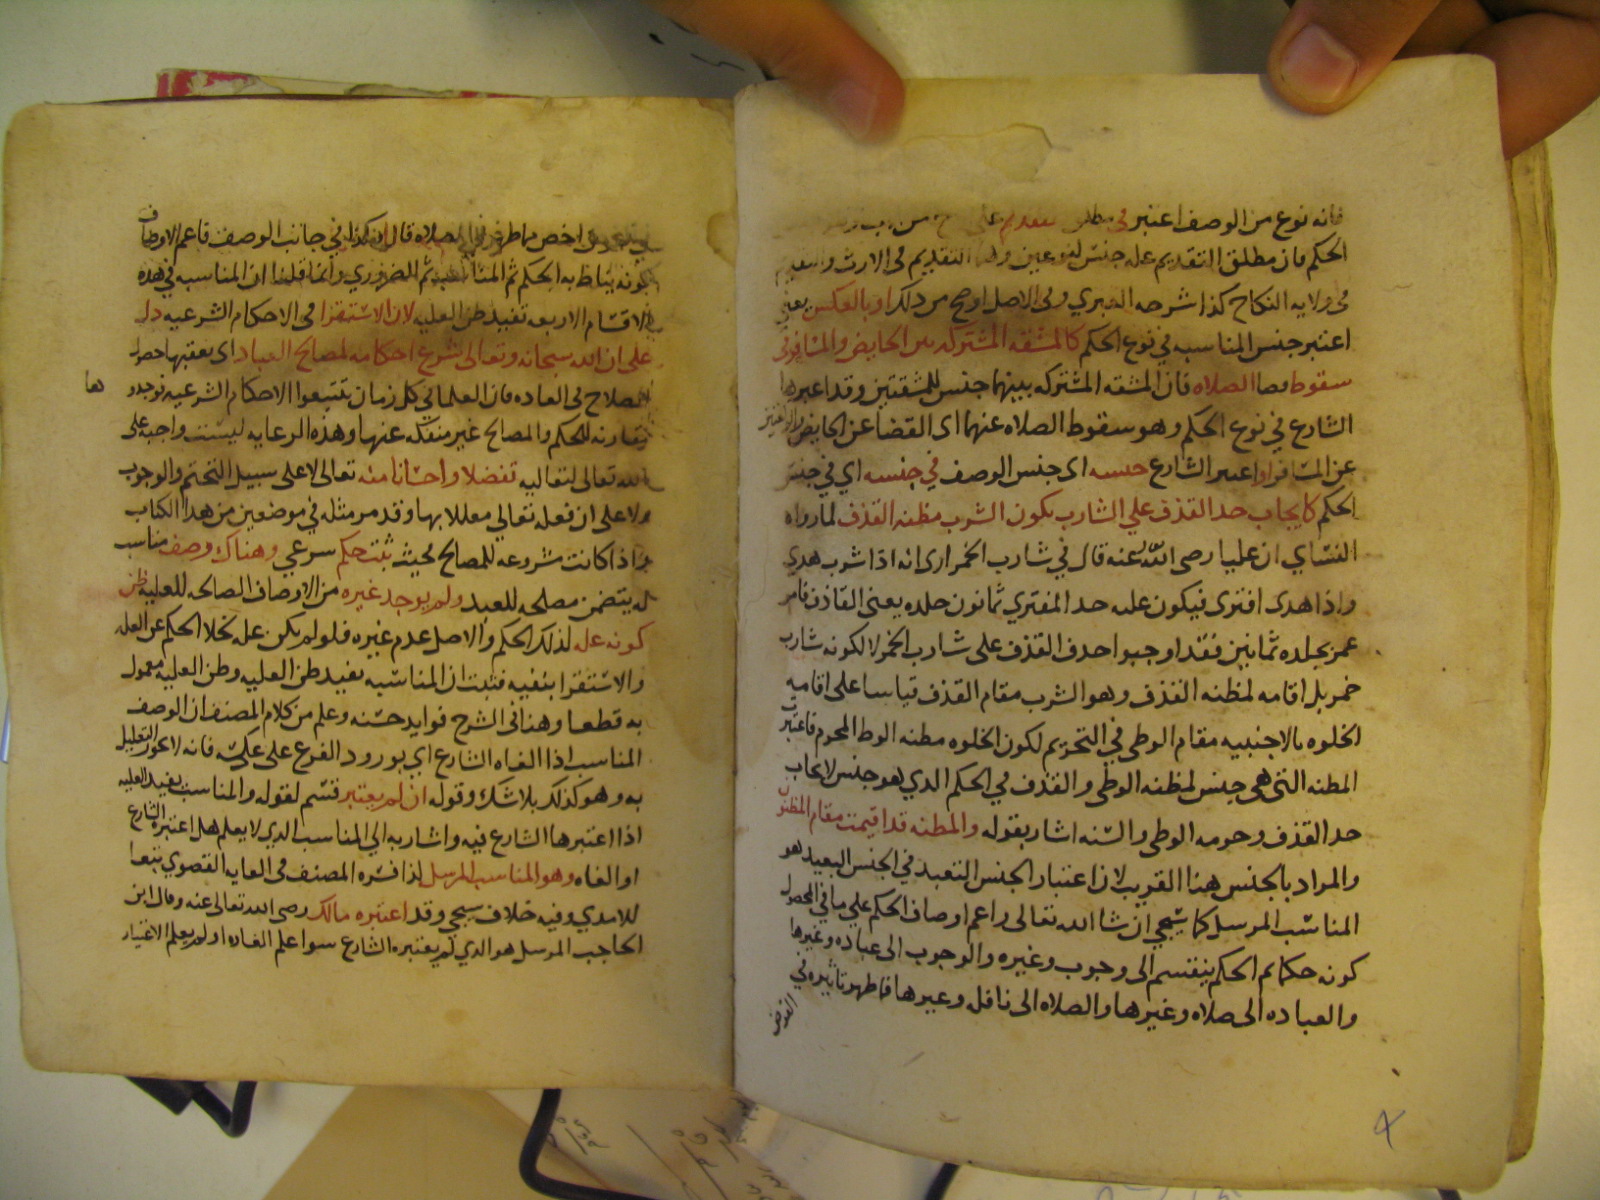 فانه نوع من الوصف اعتبر في مطلق
الحكم فان مطلق التقديم عله جنس لنوعين وهما التقديم في الارث والتقديم
في ولايه النكاح كذا شرحه العبري وفي الاصل اوضح من ذلك او بالعكس يعني
اعتبر جنس المناسبه في نوع الحكم كالمشقه المشتركه بين الحايض والمسافر في
سقوط قضا الصلاه فان المشقه المشتركه بينهما جنس للمشقتين وقد اعتبرها
الشارع في نوع الحكم وهو سقوط الصلاه عنهما اى القضا عن الحايض
عن المسافر او اعتبر الشارع جنسه اى جنس الوصف في جنسه اي في جنس
الحكم كايجاب حد القذف علي الشارب بكون الشرب مظنه القذف لما رواه
النساي ان عليا رضى الله عنه قال في شارب الخمر ارى انه اذا شرب هدى
واذا هدى افترى فيكون عليه حد المفتري ثمانون جلده يعنى القاذف فامر
عمر بجلده ثمانين فقد اوجبوا حد القذف على شارب الخمر لا لكونه شارب
خمر بل اقامه لمظنه القذف وهو الشرب مقام القذف قياسا على اقامه
الخلوه بالاجنبيه مقام الوطى في التحريم لكون الخلوه مظنه الوطا المحرم فاعتبرت
المظنه التى هي جنس لمظنه الوطى والقذف في الحكم الذي هو جنس لايجاب
حد القذف وحرمه الوطى والسنه اشار بقوله والمظنه قد اقيمت مقام المظنون
والمراد بالجنس هنا القريب لان اعتبار الجنس البعيد في الجنس البعيد هو
المناسب المرسل كما سيجي ان شا الله تعالى واعم اوصاف الحكم علي ما في المحصول
كونه حكما ثم الحكم ينقسم الى وجوب وغيره والوجوب الى عباده وغيرها
والعباده الى صلاه وغيرها والصلاه الى نافله وغيرها فما ظهر تاثيره في
الفرض
اخص مما ظهر في الصلاه قال وكذا في جانب الوصف فاعم الاوصاف
كونه يناط به الحكم ثم المناسبه ثم الضروري وانما قلنا ان المناسبه في هذه
الاقسام الاربعه تفيد ظن العليه لان الاستقرا في الاحكام الشرعيه دل
على ان الله سبحانه وتعالى شرع احكامه لمصالح العباد اى يعقبها حصول
المصلاح في العاده فان العلما في كل زمان تتبعوا الاحكام الشرعيه فوجدو
ها
مقارنه للحكم والمصالح غير منفكه عنها وهذه الرعايه ليست واجبه على
الله تعالى لتعاليه تفضلا واحسانا منه تعالى لا على سبيل التحتم والوجوب
ولا على ان فعله تعالي معللا بها وقد مر مثله في موضعين من هذا الكتاب
واذا كانت مشروعه للمصالح فحيث ثبت حكم شرعي وهناك وصف مناسب
له يتضمن مصلحه للعبد ولم يوجد غيره من الاوصاف الصالحه للعليه ظن
كونه عله لذلك الحكم والاصل عدم غيره فلو لم يكن عله لخلا الحكم عن العله
والاستقرا ينفيه فثبت ان المناسبه تفيد ظن العليه وظن العليه معمول
به قطعا وهنا في الشرح فوايد حسنه وعلم من كلام المصنف ان الوصف
المناسب اذا الغاه الشارع اي بورود الفرع على عكسه فانه لا يجوز التعليل
به وهو كذلك بلا شك وقوله ان لم يعتبر قسم لقوله والمناسب يفيد العليه
اذا اعتبرها الشارع فيه واشار به الي المناسب الذي لا يعلم هل اعتبره الشارع
او الغاه وهو المناسب المرسل كذا فسره المصنف في الغايه القصوي تبعا
للامدي وفيه خلاف سيجي وقد اعتبره مالك رضى الله تعالى عنه وقال ابن
الحاجب المرسل هو الذي لم يعتبره الشارع سوا علم الغاه او لم يعلم الاعتبار